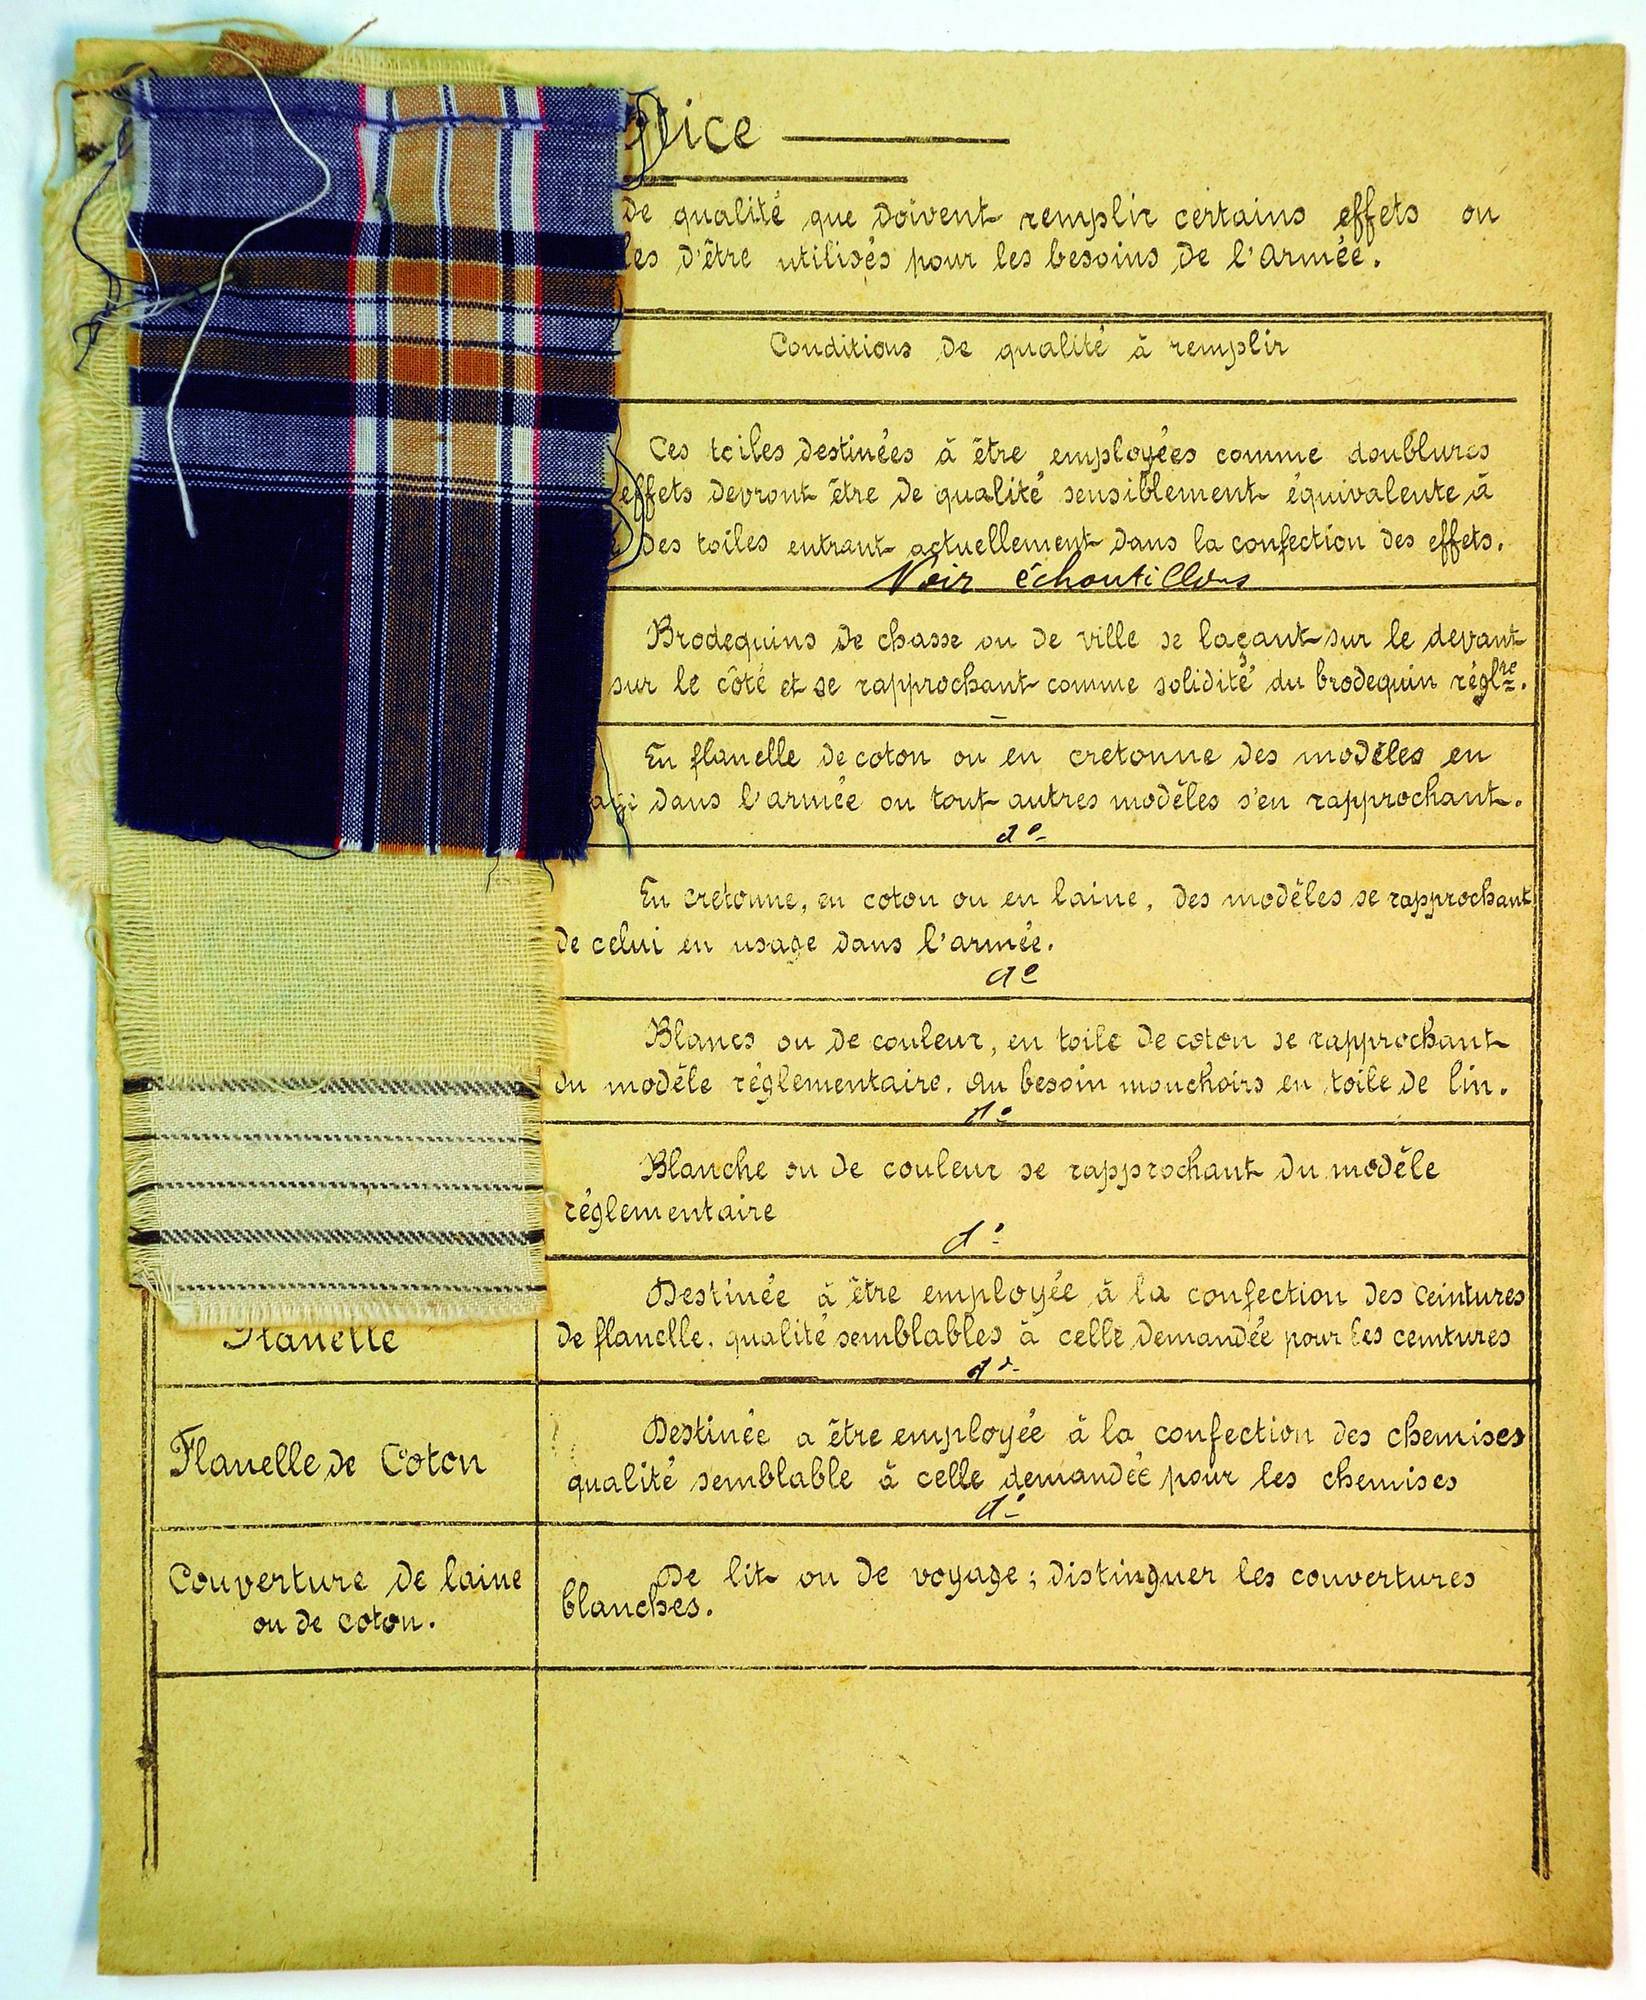 de qualité que doivent remplir certains effets ou
d'être utilisés pour les besoins de l'Armée.
Conditions de qualité à remplir
Ces toiles destinées à être employées comme doublures
effets devront être de qualité sensiblement équivalente à
des toiles entrant actuellement dans la confection des effets.
Voir échantillons
Brodequins de chasse ou de ville se laçant sur le devant
sur le côté et se rapprochant comme solidité du brodequin réglre.
En flanelle de coton ou en cretonne des modèles en
dans l'armée ou tout autres modèles s'en rapprochant.
do
En cretonne, en coton ou en laine, des modèles se rapprochant
de celui en usage dans l'armée.
do
Blancs ou de couleur, en toile de coton se rapprochant
du modèle réglementaire. Au besoin mouchoirs en toile de lin.
do
Blanche ou de couleur se rapprochant du modèle
réglementaire
do
Destinée à être employée à la confection des ceintures
Flanelle
de flanelle, qualité semblables à celle demandée pour les ceintures
do
Destinée a être employée à la confection des chemises
Flanelle de Coton
qualité semblable à celle demandée pour les chemises
do
Couverture de laine
ou de coton.
De lit ou de voyage ; distinguer les couvertures
blanches.